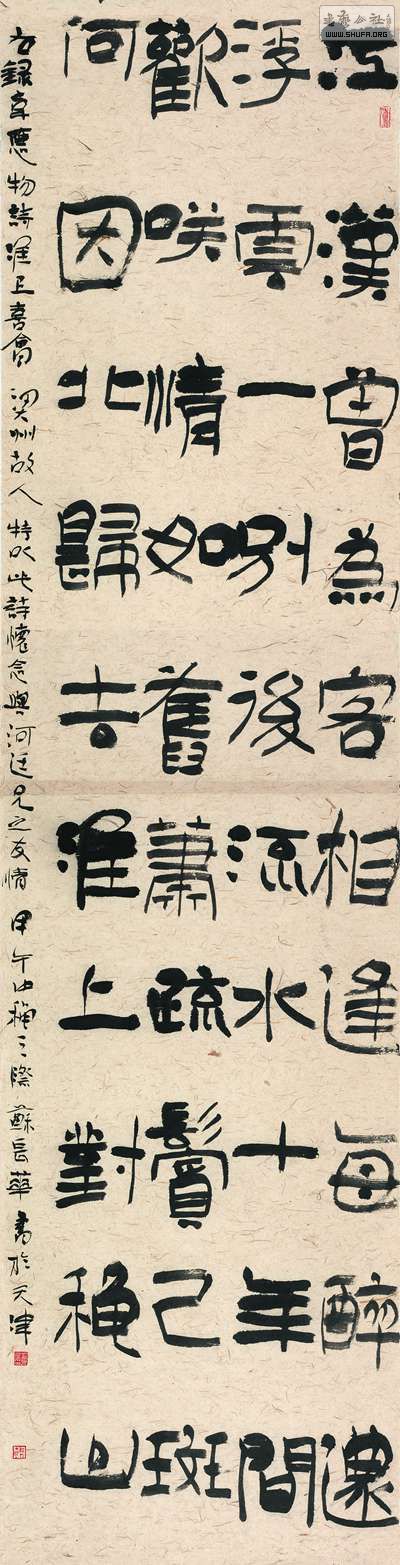 書藝公社
WWW.SHUFA.ORG
江漢曾為客相逢每醉還
浮雲一别後流水十年間
歡咲情如舊蕭疏鬢已斑
何因北歸去淮上對穐山
右錄韋應物詩淮上喜會梁州故人特以此詩懷念與河廷兄之友情甲午中穐之際蘇長華書於天津